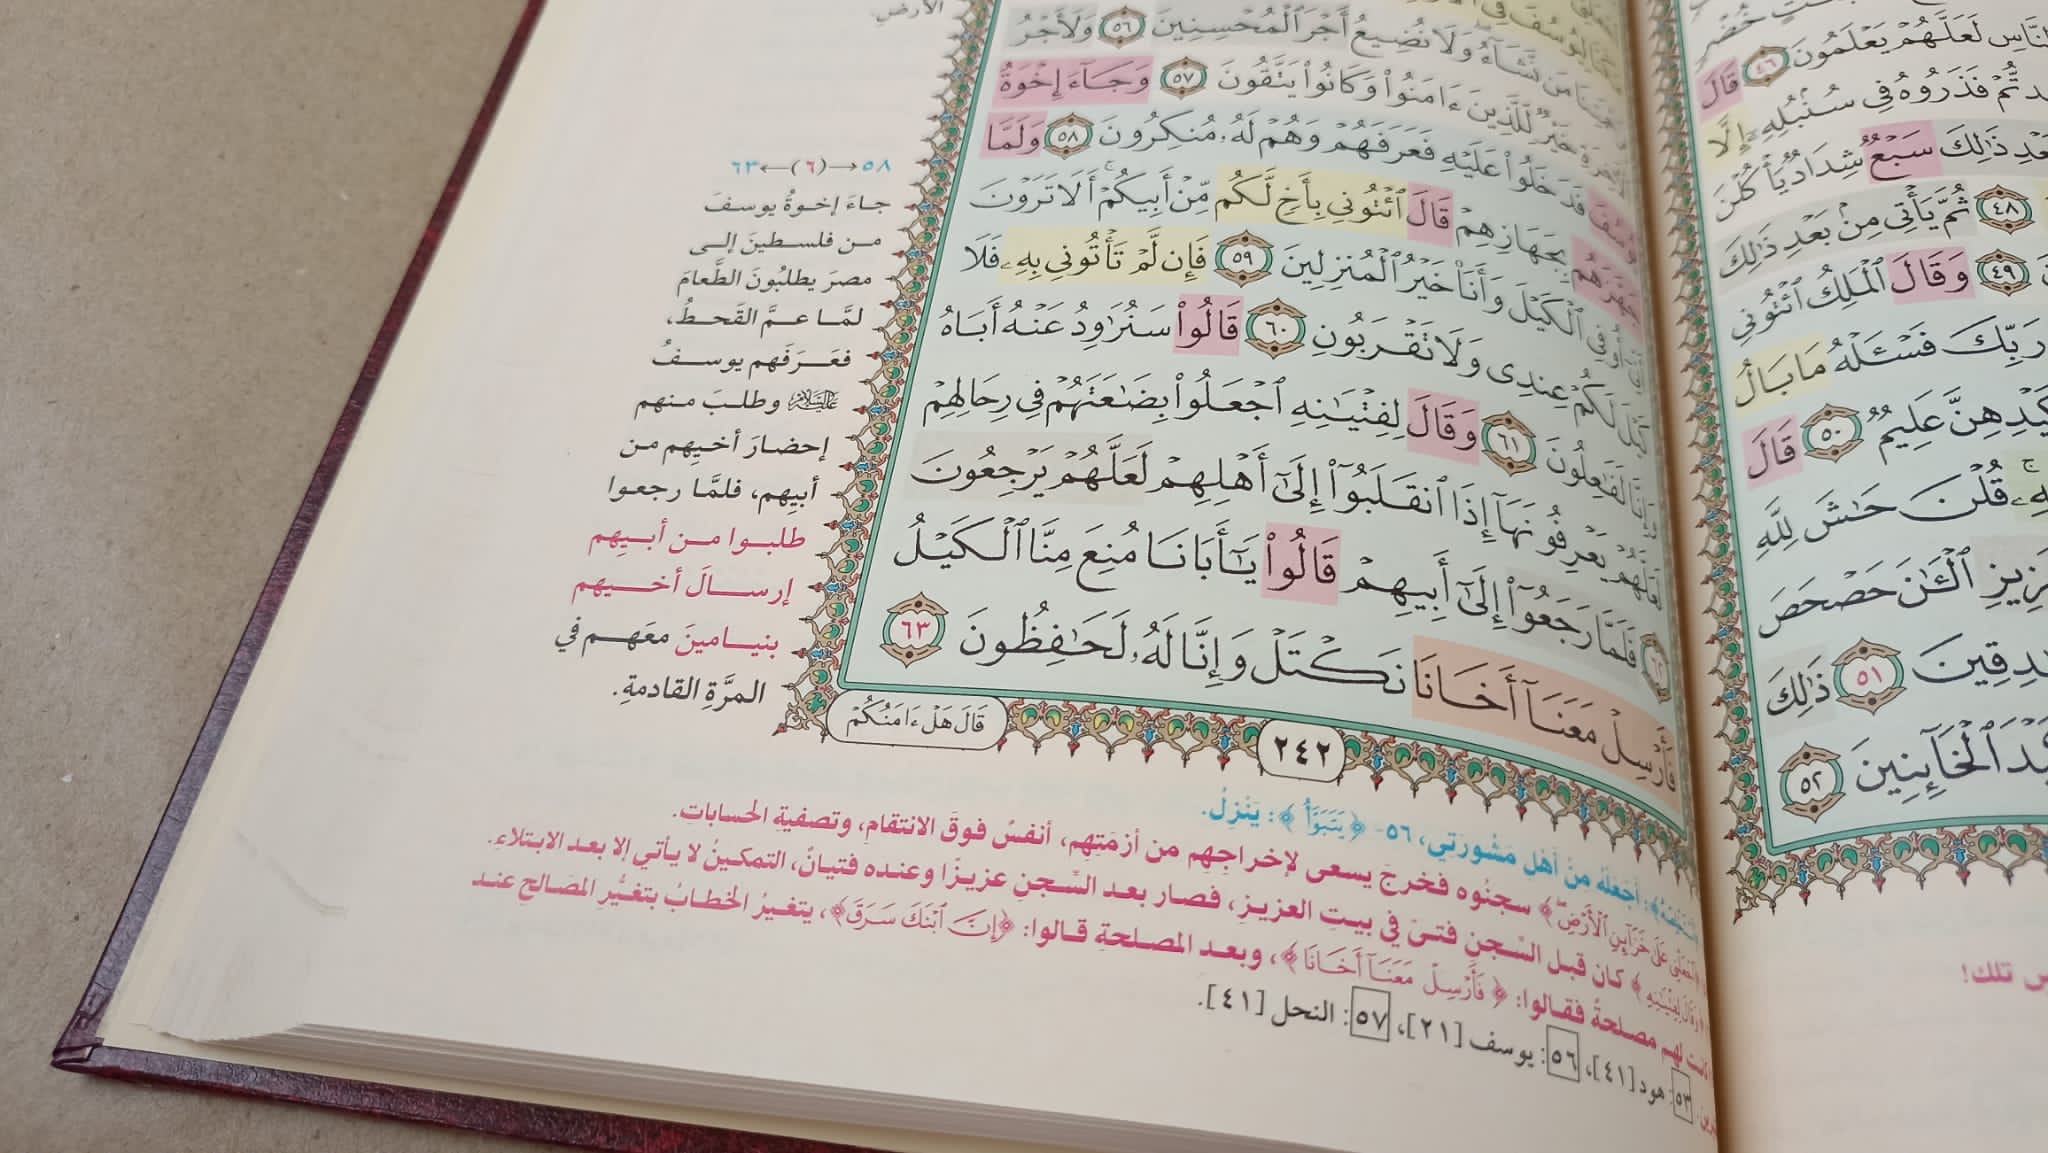 الأرض.
نُضِيعُ أَجْرَ ٱلْمُحْسِنِينَ ٥٦ وَلَأَجْرُ
خَيْرٌ لِّلَّذِينَ ءَامَنُوا۟ وَكَانُوا۟ يَتَّقُونَ ٥٧ وَجَآءَ إِخْوَةُ
يُوسُفَ فَدَخَلُوا۟ عَلَيْهِ فَعَرَفَهُمْ وَهُمْ لَهُۥ مُنكِرُونَ ٥٨ وَلَمَّا
جَهَّزَهُم بِجَهَازِهِمْ قَالَ ٱئْتُونِى بِأَخٍ لَّكُم مِّنْ أَبِيكُمْ ۚ أَلَا تَرَوْنَ
أَنِّىٓ أُوفِى ٱلْكَيْلَ وَأَنَا۠ خَيْرُ ٱلْمُنزِلِينَ ٥٩ فَإِن لَّمْ تَأْتُونِى بِهِۦ فَلَا
كَيْلَ لَكُمْ عِندِى وَلَا تَقْرَبُونِ ٦٠ قَالُوا۟ سَنُرَٰوِدُ عَنْهُ أَبَاهُ
وَإِنَّا لَفَٰعِلُونَ ٦١ وَقَالَ لِفِتْيَٰنِهِ ٱجْعَلُوا۟ بِضَٰعَتَهُمْ فِى رِحَالِهِمْ
لَعَلَّهُمْ يَعْرِفُونَهَآ إِذَا ٱنقَلَبُوٓا۟ إِلَىٰٓ أَهْلِهِمْ لَعَلَّهُمْ يَرْجِعُونَ
٦٢ فَلَمَّا رَجَعُوٓا۟ إِلَىٰٓ أَبِيهِمْ قَالُوا۟ يَٰٓأَبَانَا مُنِعَ مِنَّا ٱلْكَيْلُ
فَأَرْسِلْ مَعَنَآ أَخَانَا نَكْتَلْ وَإِنَّا لَهُۥ لَحَٰفِظُونَ ٦٣
٢٤٢
قَالَ هَلْ ءَامَنُكُمْ
٥٨→(٦)←٦٣
جاءَ إخوةُ يوسفَ
من فلسطينَ إلى
مصرَ يطلبُونَ الطَّعامَ
لمَّا عمَّ القَحطُ،
فعَرَفَهم يوسفُ
عليه السلام وطلبَ منهم
إحضارَ أخيِهم من
أبيِهم، فلمَّا رجعوا
طلبوا من أبيِهم
إرسالَ أخيهم
بنيامينَ معَهم في
المرَّةِ القادمةِ.
أَجْعَلْهُ مِنْ أَهْلِ مَشُورَتِي، ٥٦- ﴿يَتَبَوَّأُ﴾: يَنْزِلُ.
خَزَآئِنِ ٱلْأَرْضِ﴾ سجنُوه فخرجَ يسعى لإخراجِهم من أزمَتِهم، أنفسٌ فوقَ الانتقامِ، وتصفيةِ الحساباتِ.
﴿وَقَالَ لِفِتْيَٰنِهِ﴾ كان قبل السِّجنِ فتىً في بيتِ العزيزِ، فصار بعد السِّجنِ عزيزًا وعنده فتيانٌ، التمكينُ لا يأتي إلا بعد الابتلاءِ.
كانت لهم مصلحةٌ فقالوا: ﴿فَأَرْسِلْ مَعَنَآ أَخَانَا﴾، وبعد المصلحةِ قالوا: ﴿إِنَّ ٱبْنَكَ سَرَقَ﴾، يتغيرُ الخطابُ بتغيُّرِ المصَالحِ عند
٥٣: هود [٤١]، ٥٦: يوسف [٢١]، ٥٧: النحل [٤١].
ٱلنَّاسِ لَعَلَّهُمْ يَعْلَمُونَ ٤٦ قَالَ
فَذَرُوهُ فِى سُنۢبُلِهِۦٓ إِلَّا
بَعْدِ ذَٰلِكَ سَبْعٌ شِدَادٌ يَأْكُلْنَ
٤٨ ثُمَّ يَأْتِى مِنۢ بَعْدِ ذَٰلِكَ
٤٩ وَقَالَ ٱلْمَلِكُ ٱئْتُونِى
رَبِّكَ فَسْـَٔلْهُ مَا بَالُ
بِكَيْدِهِنَّ عَلِيمٌ ٥٠ قَالَ
قُلْنَ حَٰشَ لِلَّهِ
ٱلْـَٰٔنَ حَصْحَصَ
٥١ ذَٰلِكَ
ٱلْخَآئِنِينَ ٥٢
تلك!